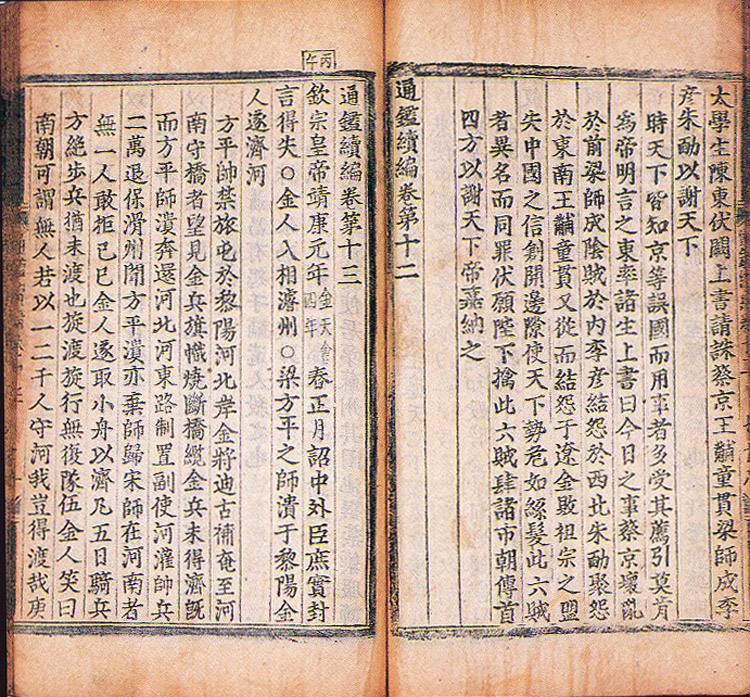 太學生陳東伏闕上書請誅蔡京王黼童貫梁師成李
彥朱勔以謝天下
時天下皆知京等誤國而用事者多受其薦引莫肯
爲帝明言之東率諸生上書曰今日之事蔡京壞亂
於前梁師成陰賊於内李彥結怨於西北朱勔聚怨
於東南王黼童貫又從而結怨于遼金敗祖宗之盟
失中國之信創開邊隙使天下勢危如絲髮此六賊
者異名而同罪伏願陛下擒此六賊肆諸市朝傳首
四方以謝天下帝嘉納之
通鑑續編卷第十二
通鑑續編卷第十三
丙午
欽宗皇帝靖康元年金天會四年春正月詔中外臣庶實封
言得失○金人入相濬州○梁方平之師潰于黎陽金
人遂濟河
方平帥禁旅屯於黎陽河北岸金將迪古補奄至河
南守橋者望見金兵旗幟燒斷橋纜金兵未得濟旣
而方平師潰奔還河北河東路制置副使何灌帥兵
二萬退保滑州聞方平潰亦棄師歸宋師在河南者
無一人敢拒已巳金人遂取小舟以濟凡五日騎兵
方絕步兵猶未渡也旋渡旋行無復隊伍金人笑曰
南朝可謂無人若以一二千人守河我豈得渡哉庚